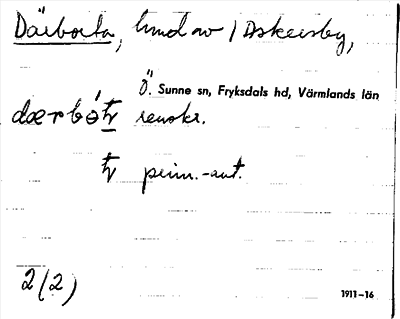 Därborta, hmd av / Askersby,
Ö. Sunne sn, Fryksdals hd, Värmlands län
renskr.
prim.-ant.
2(2)
1911-16